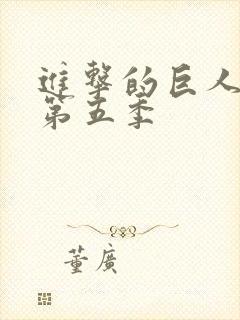 進擊的巨人
第五季
董廣